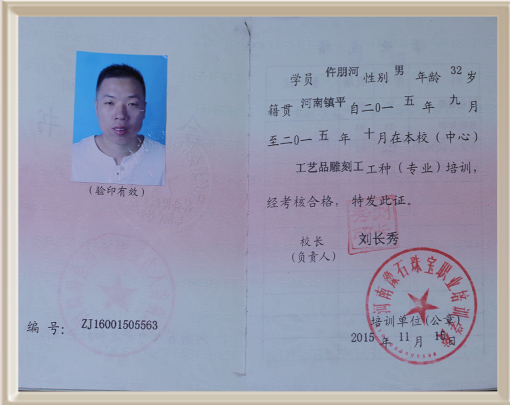 (验印有效)
编 号: ZJ16001505563
学员 仵朋河 性别 男 年龄 32 岁
籍贯 河南镇平 自二0一 五 年 九 月
至二0一 五 年 十 月在本校(中心)
工艺品雕刻工 工种(专业)培训,
经考核合格, 特发此证。
校长
(负责人)
刘长秀
培训单位(公章)
2015 年 11 月 日